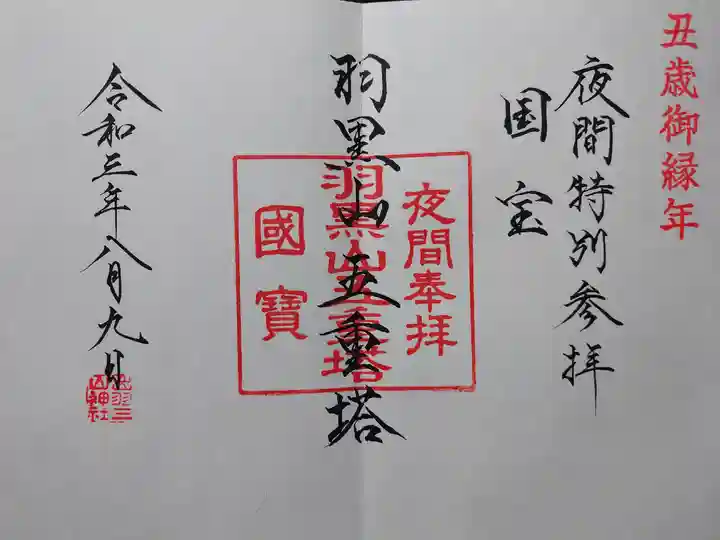 丑歳御縁年
夜間特別参拝
国宝
羽黒山五重塔
夜間奉拝
羽黒山五重塔
國寶
令和三年八月九日
出羽三
山神社